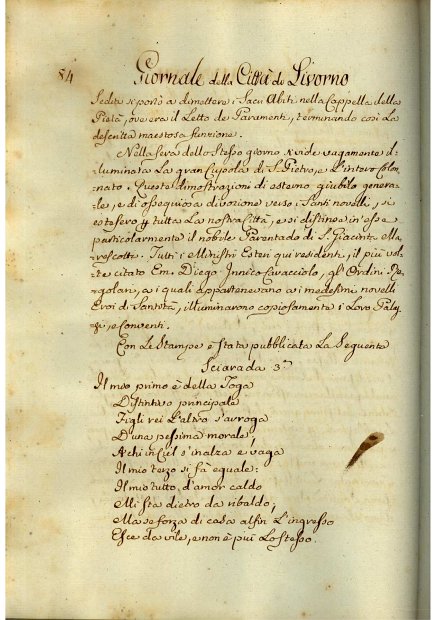 84 Giornale della Città di Livorno
Sedia si portò a dimettere i Sacri Abiti nella Cappella della
Pietà, ove era il Letto de' Paramenti, terminando così La
descritta maestosa funzione.
Nella sera dello Stesso giorno si vide vagamente il-
luminata La gran Cupola di S. Pietro, e L'intero Colon-
nato. Queste dimostrazioni di esterno giubilo genera-
le, e di ossequiosa divozione verso i Santi novelli, si
estesero p. tutta La nostra Città, e si distinse in esse
particolarmente il nobile Parentado di S. Giacinta Ma-
rescotti. Tutti i Ministri Esteri qui residenti, il più vol-
te citato Em. Diego Innico Caracciolo, gl'Ordini Re-
golari, a i quali appartenevano i medesimi novelli
Eroi di Santità, illuminarono copiosamente i Loro Palaz-
zi, e Conventi.
Con Le Stampe è Stata pubblicata La Seguente
Sciarada 3ª
Il mio primo è della Toga
Distintivo principale
Figli rei L'altro s'arroga
D'una pessima morale;
A chi in Ciel s'inalza e vaga
Il mio terzo si fà eguale:
Il mio tutto d'amor caldo
Mi sta dietro da ribaldo,
Ma se forza di casa alfin L'ingresso
Esce da vile, e non è più Lo stesso.